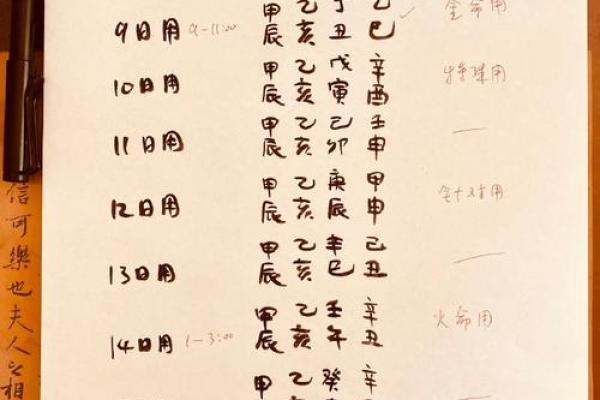 甲 乙 丁 乙
9日用 9-11:00 辰 亥 丑 巳 金命用
甲 乙 戊 辛
10日用 辰 亥 寅 酉 特殊用
甲 乙 己 壬
11日用 辰 亥 卯 申
甲 乙 庚 甲
12日用 辰 亥 辰 申 針对用
甲 乙 辛 己
13日用 辰 亥 巳 丑
甲 乙 壬 辛
14日用 1-3:00 辰 亥 午 丑 火命用
甲 乙 癸 辛
信可樂也夫人之相